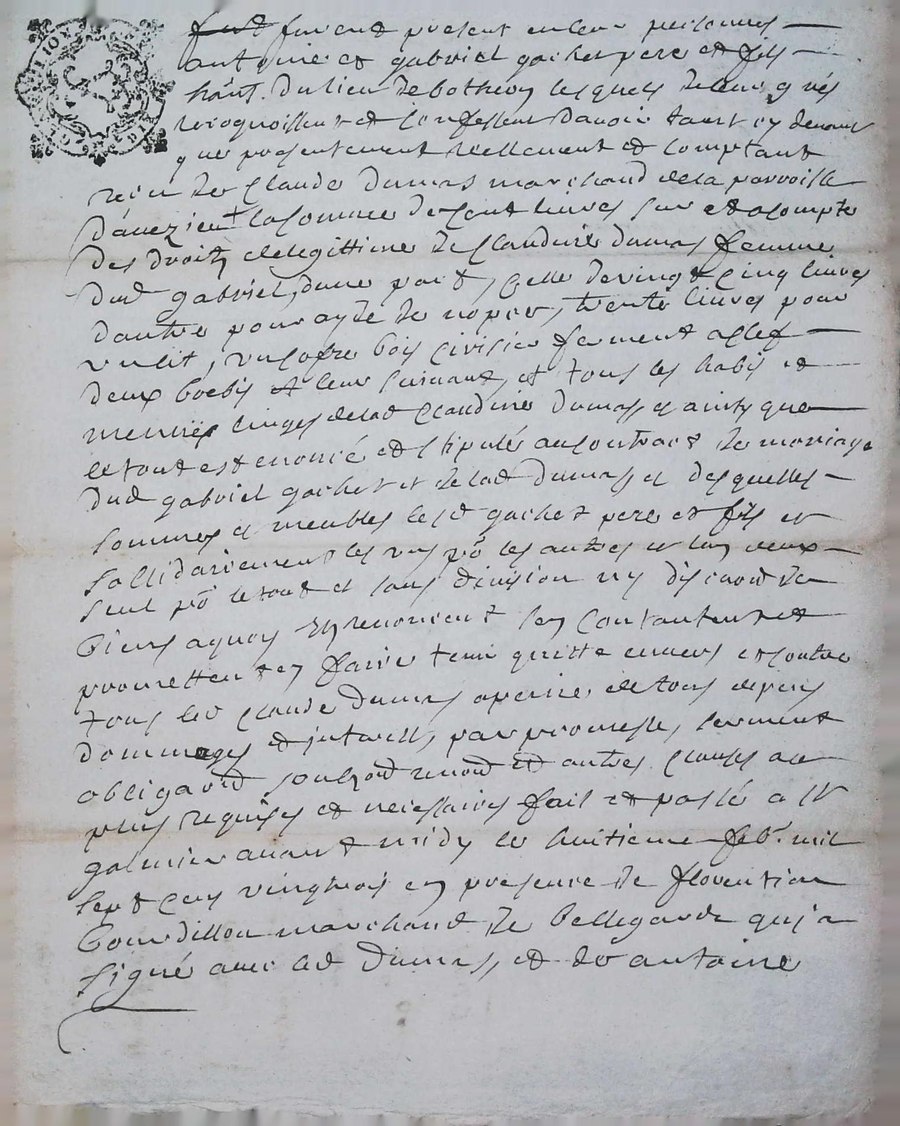 furent present en leur personnes
antoine et gabriel gachet pere et fils
habts. du lieu de botheon lesquels de leur grés
recognoissent et confessent d'avoir tant cy devant
que presentement reellement et comptant
receu de Claude dumas marchand de la parroisse
d'aveizieu la somme de cent livres sur et a compte
des droitz de legittime de Claudine dumas femme
dud gabriel, d'une part, celle de vingt cinq livres
d'autre pour ayde de nopces, trente livres pour
un lit, un cofre bois fermant a clef
deux brebis et leur suivant, et tous les habis et
menues linges de lad Claudine dumas, et ainsy que
le tout est enoncé et stipulé au contract de mariage
dud gabriel gachet et de lad dumas, et desquelles
sommes et meubles lesd gachet pere et fils et
sollidairement les uns pr les autres et l'un d'eux
seul pr le tout et sans division ny discution de
biens a quoy ils renoncent s'en contantent et
promettent en faire tenir quitte envers et contre
tous led Claude dumas a peine de tous depens
dommages et interests, par promesse, serment
obligaõn renoõn et autres clauses au
plus requises et necessaires fait et passé a st
galmier avant midy le huitieme feb. mil
sept cens vingtrois en presence de florention
Bourdillon marchand de bellegarde qui a
signé avec led dumas, et led antoine